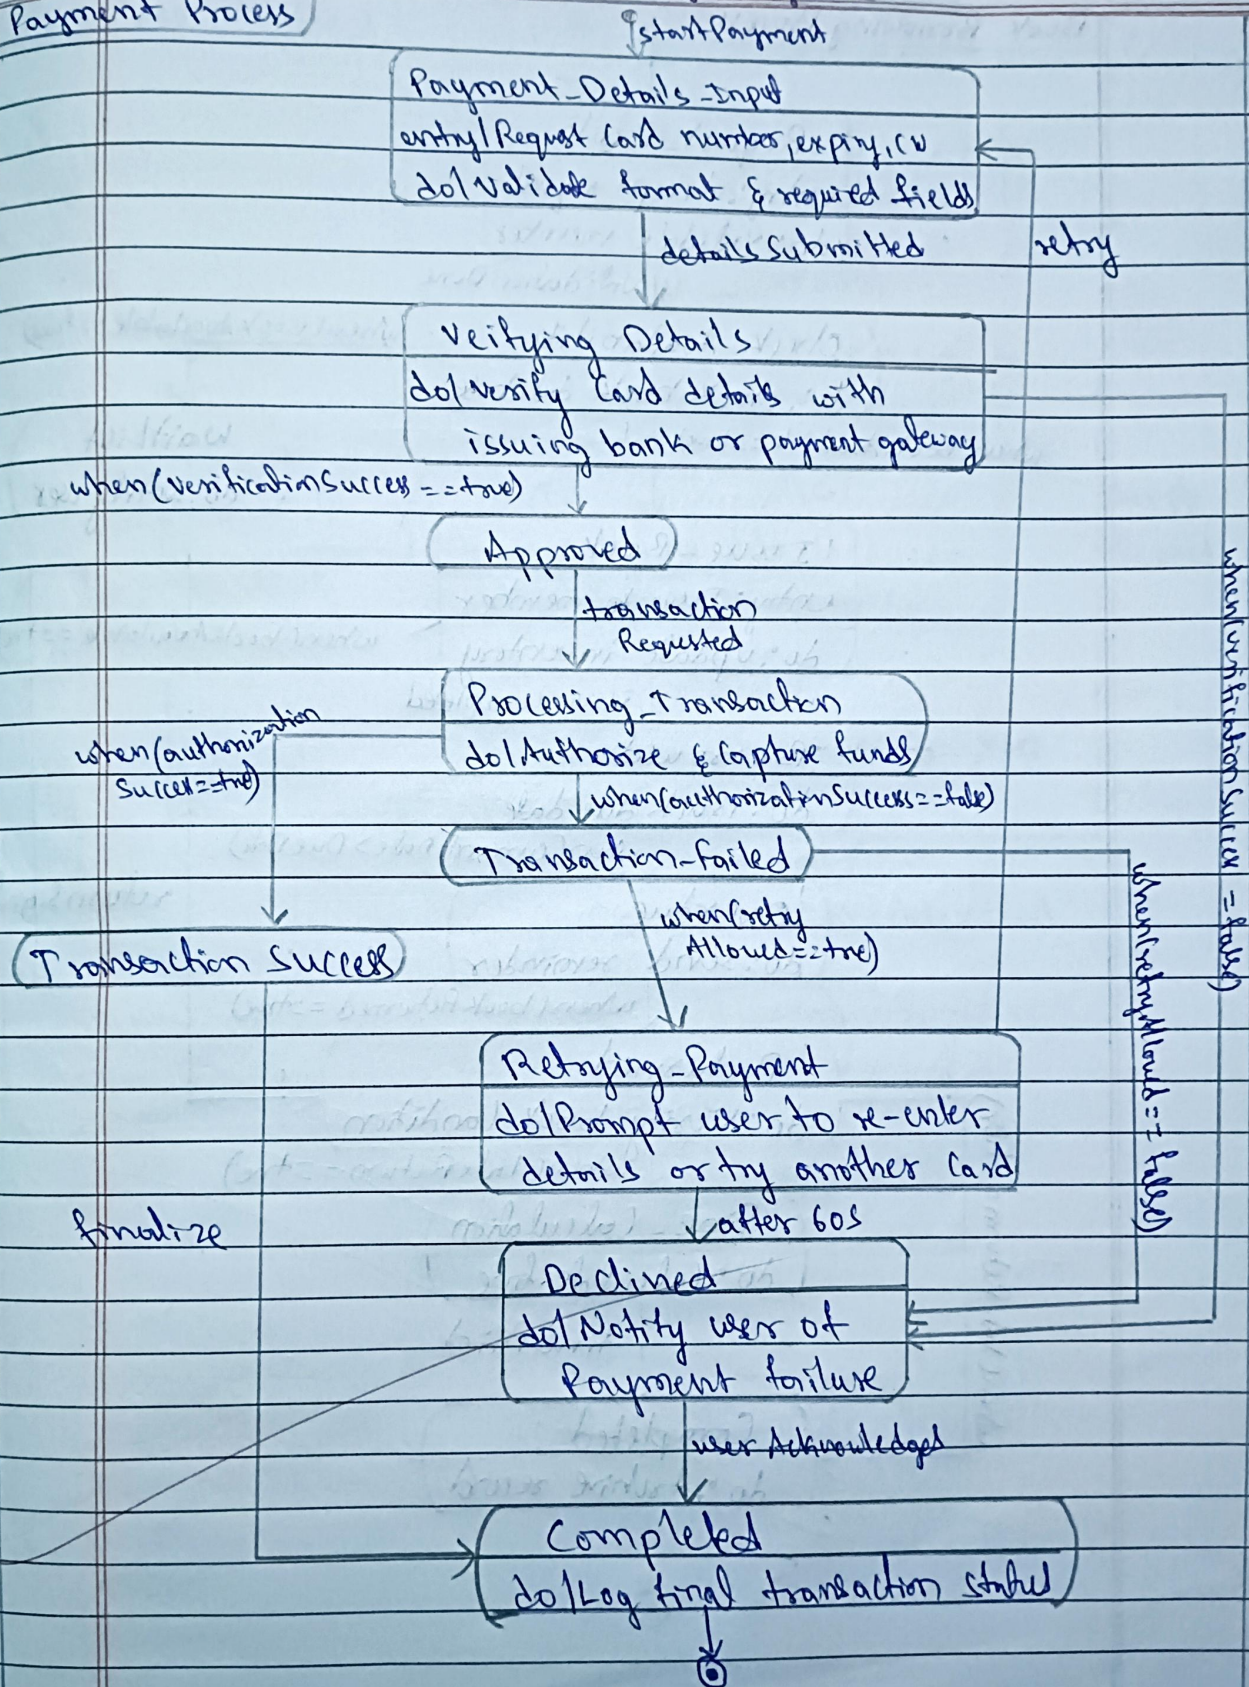 Payment Process
startPayment
Payment_Details_Input
entry/Request Card number, expiry, cvv
do/Validate format & required fields
detailsSubmitted
retry
Veifying Details
do/verify Card details with
issuing bank or payment gateway
when(verificationSuccess==true)
Approved
transaction
Requsted
when(verificationSuccess=false)
Processing_Transaction
do/Authorize & Capture funds
when(authorization
Success==true)
when(authorizationSuccess==false)
Transaction-failed
when(retry
Allowed==true)
when(retryAllowed==false)
Transaction Success
Retrying-Payment
do/Prompt user to re-enter
details or try another Card
finalize
after 60s
Declined
do/Notify user of
Payment failure
user Acknowledged
Completed
do/Log final transaction status